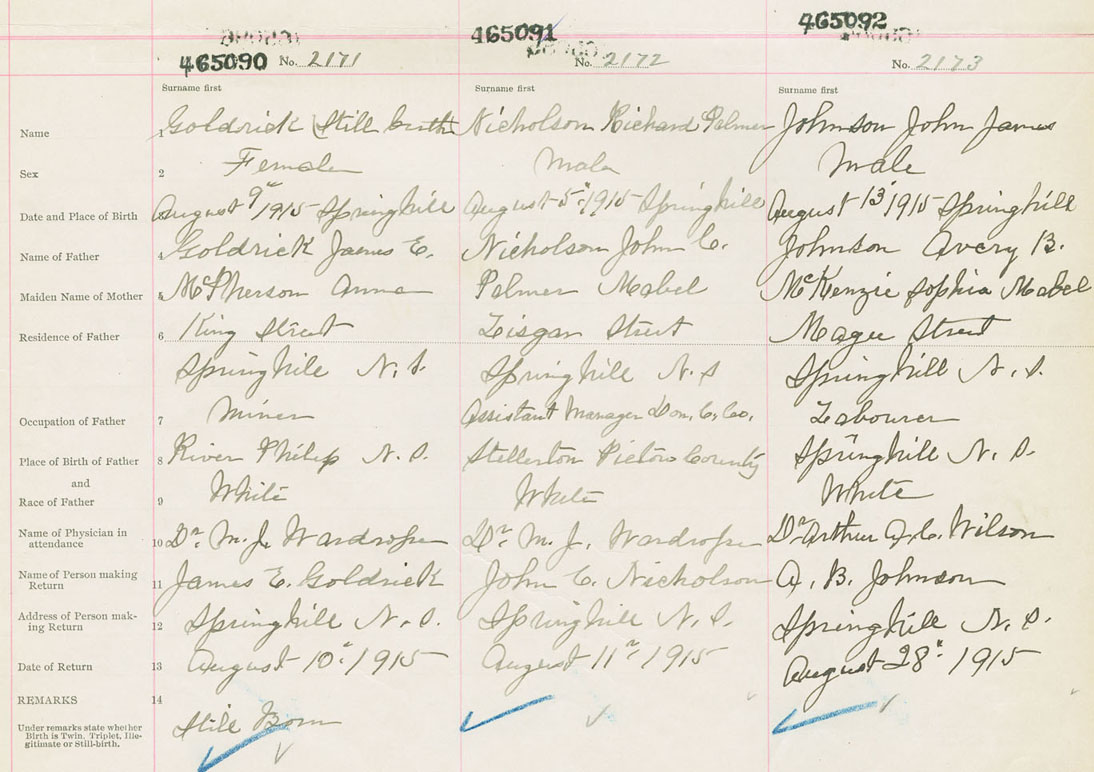 465090 No. 2171 465091 No. 2172 465092 No. 2173
Surname first Surname first Surname first
Name 1 Goldrick (Still birth Nicholson Richard Palmer Johnson John James
Sex 2 Female Male Male
Date and Place of Birth August 9" 1915 Springhill August 5" 1915 Springhill August 13" 1915 Springhill
Name of Father 4 Goldrick James E. Nicholson John C. Johnson Avery B.
Maiden Name of Mother 5 McPherson Anna Palmer Mabel McKenzie Sophia Mabel
Residence of Father 6 King Street Lisgar Street Magee Street
Springhill N.S. Springhill N.S Springhill N.S.
Occupation of Father 7 Miner Assistant Manager Dom. C. Co. Labourer
Place of Birth of Father 8 River Philip N.S. Stellarton Pictou County Springhill N.S.
and
Race of Father 9 White White White
Name of Physician in
attendance 10 Dr. M. J. Wardrope Dr. M. J. Wardrope Dr Arthur A. C. Wilson
Name of Person making
Return 11 James E. Goldrick John C. Nicholson A. B. Johnson
Address of Person mak-
ing Return 12 Springhill N.S. Springhill N.S. Springhill N.S.
Date of Return 13 August 10" 1915 August 11" 1915 August 28" 1915
REMARKS 14
Under remarks state whether
Birth is Twin, Triplet, Ille-
gitimate or Still-birth.
Still Born